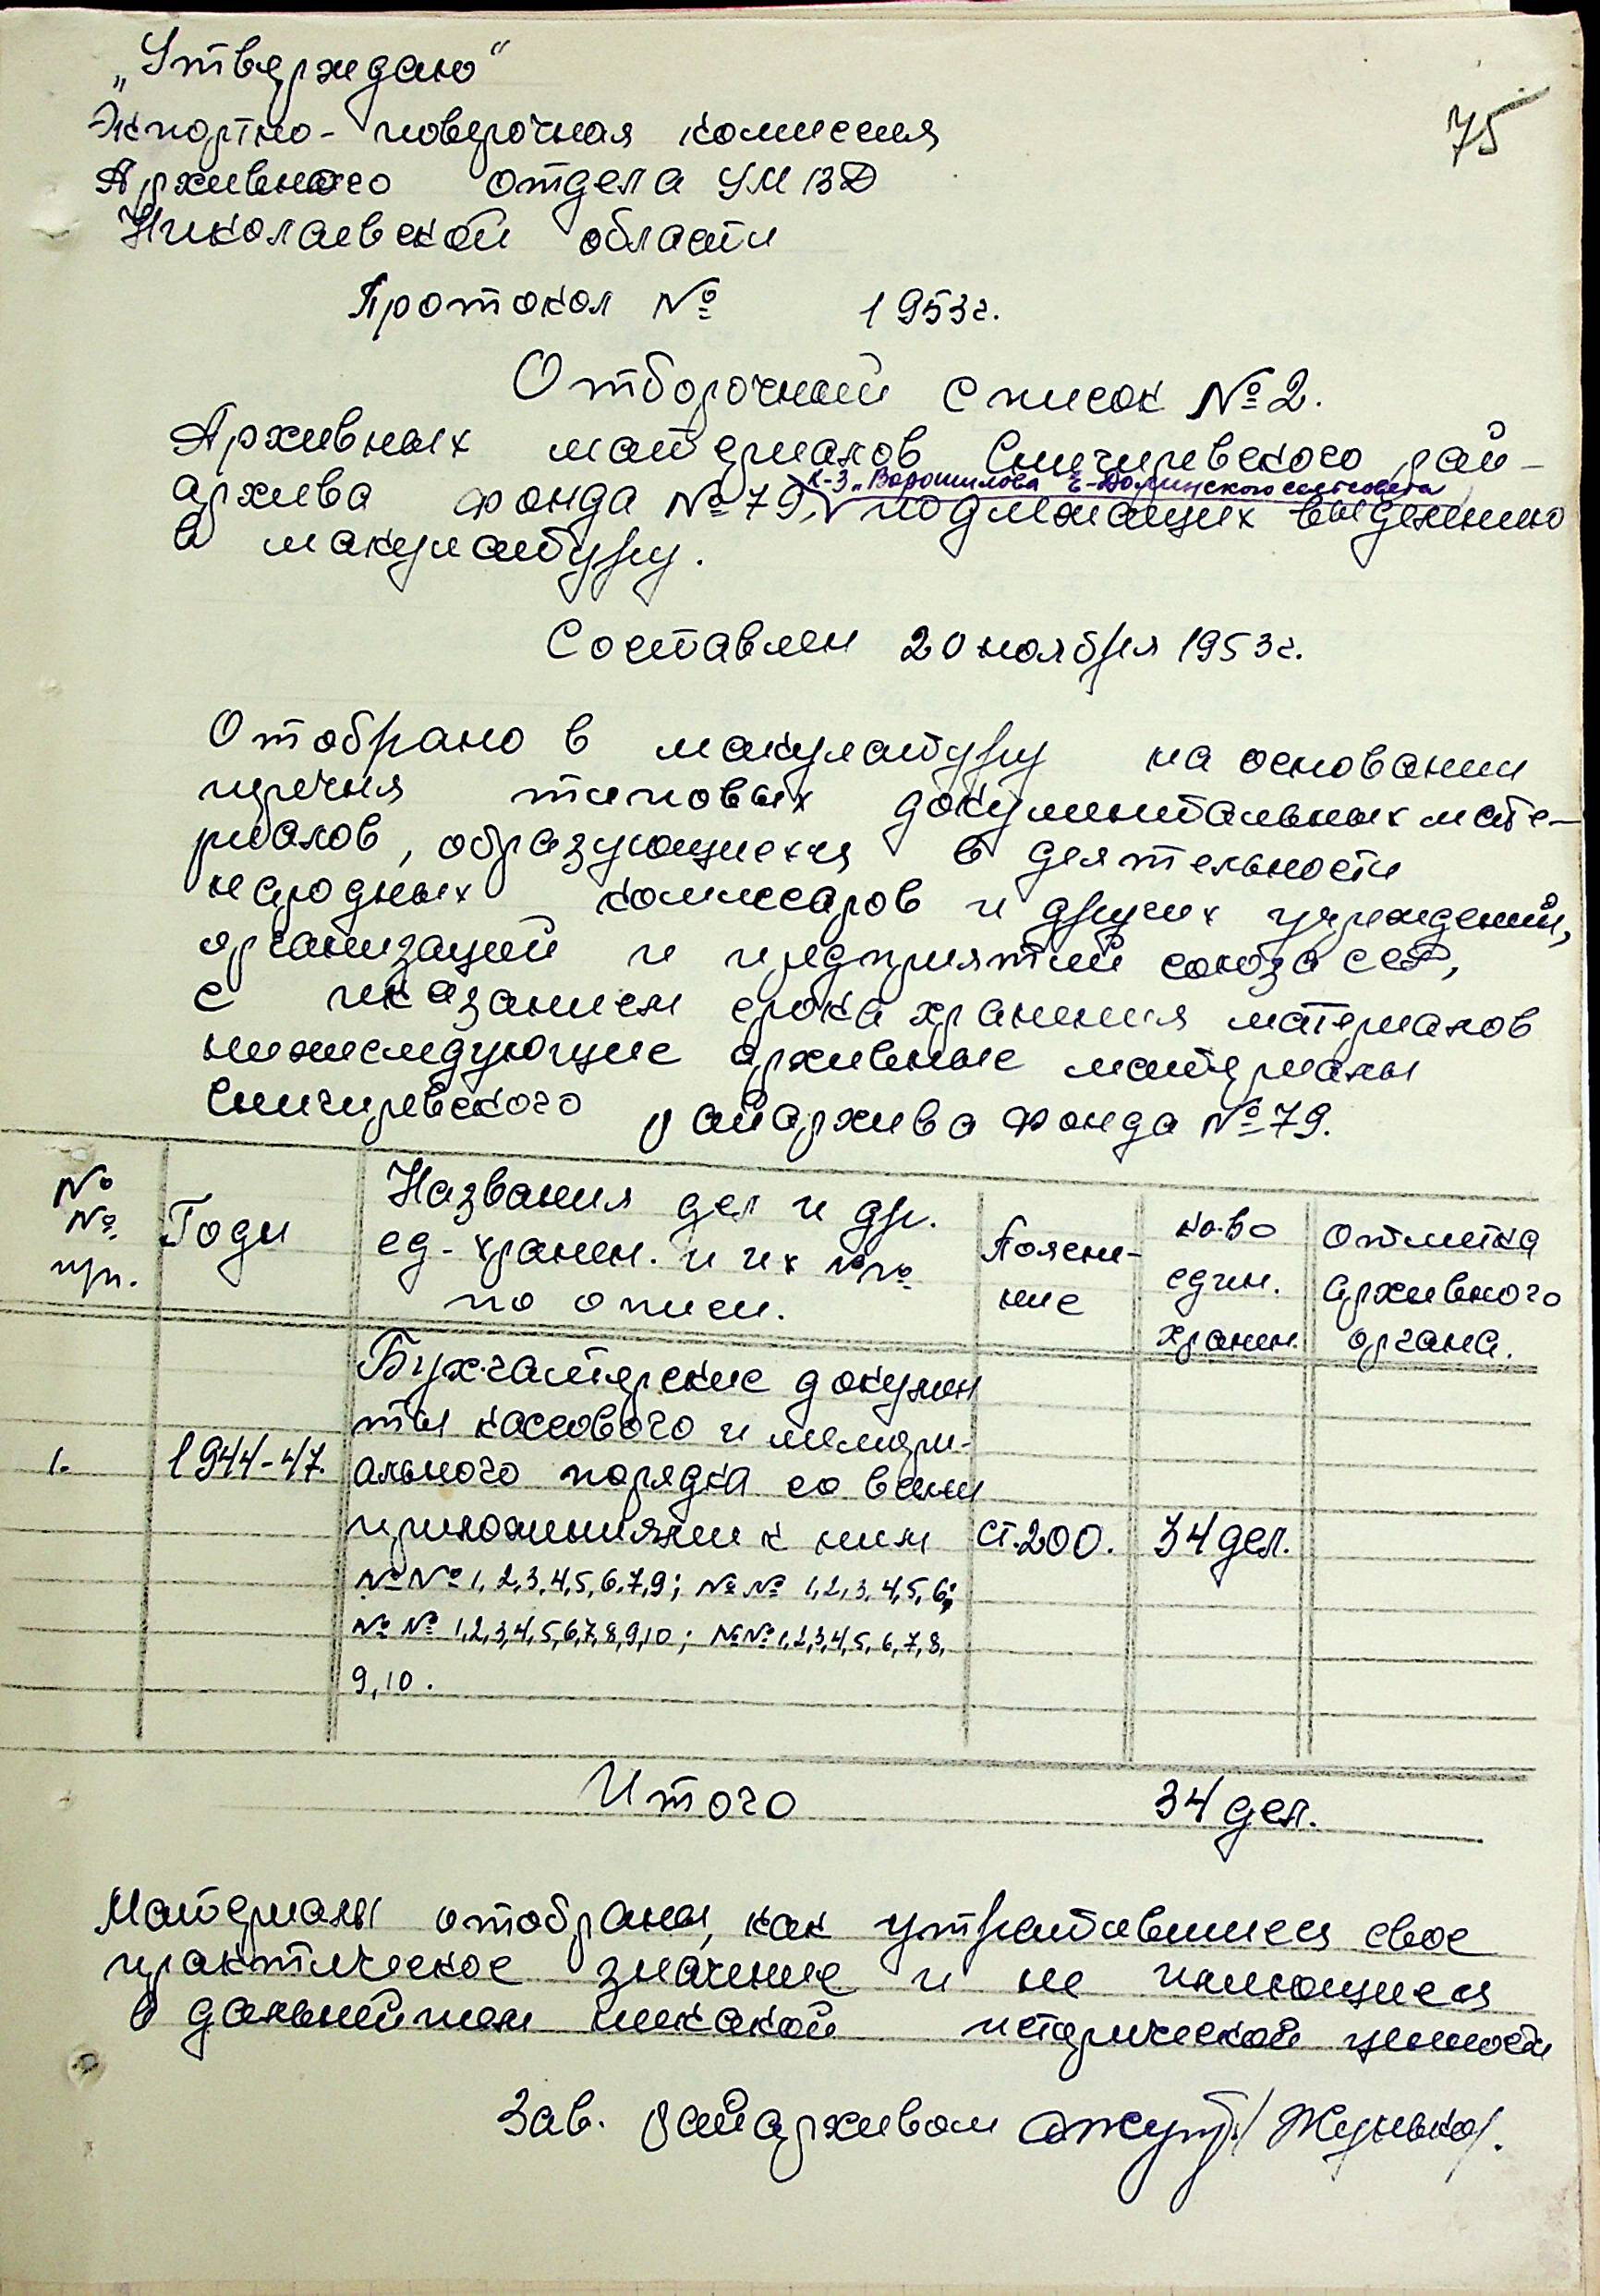 75
„Утверждаю"
Экпортно-поверочная комиссия
Архивного отдела УМВД
Николаевской области
Протокол № 1953г.
Отборочный список № 2.
Архивных материалов Снигиревского рай-
к-з „Ворошилова Е-Долинского сельсовета
архива фонда № 79, подлежащих выделению
в макулатуру.
Составлен 20 ноября 1953г.
Отобрано в макулатуру на основании
перечня типовых документальных мате-
риалов, образующихся в деятельности
народных комиссаров и других учреждений,
организаций и предприятий союза ССР,
с указанием срока хранения материалов
нижеследующие архивные материалы
Снигиревского райархива фонда № 79.
№ № пп. Годы Названия дел и др. ед-хранен. и их №№ по описи. Пояснение ко-во един. хранен. Отметка архивного органа.
Бухгалтерские докумен
ты кассового и мемори-
1. 1944-47. ального порядка со всеми
приложениями к ним ст.200. 34 дел.
№ № 1,2,3,4,5,6,7,9; № № 1,2,3,4,5,6;
№ № 1,2,3,4,5,6,7,8,9,10; №№ 1,2,3,4,5,6,7,8,
9,10.
Итого 34 дел.
Материалы отобраны, как утратившиеся свое
практическое значение и не имеющиеся
в дальнейшем никакой исторической ценности
Зав. райархивом /Жунько/.